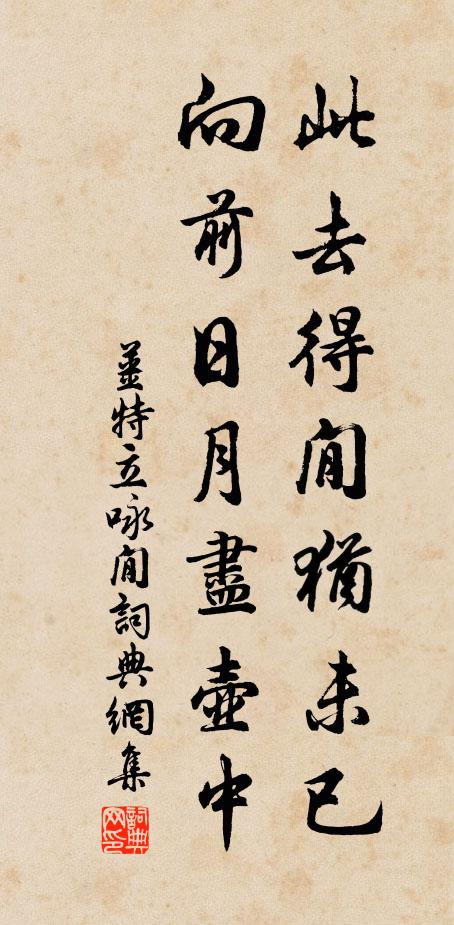 此去得閒猶未已
向前日月盡壺中
薑特立咏閒詞典網集
詞典网印